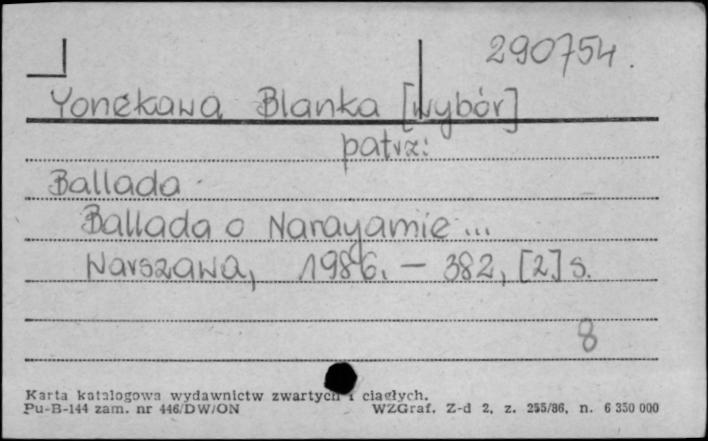 290754.
Yonekawa Blanka [wybór]
patrz:
Ballada
Ballada o Narayamie ...
Warszawa, 1986. - 382, [2] s.
8
Karta katalogowa wydawnictw zwartych i ciągłych.
Pu-B-144 zam. nr 446/DW/ON WZGraf. Z-d 2, z. 255/86, n. 6 350 000